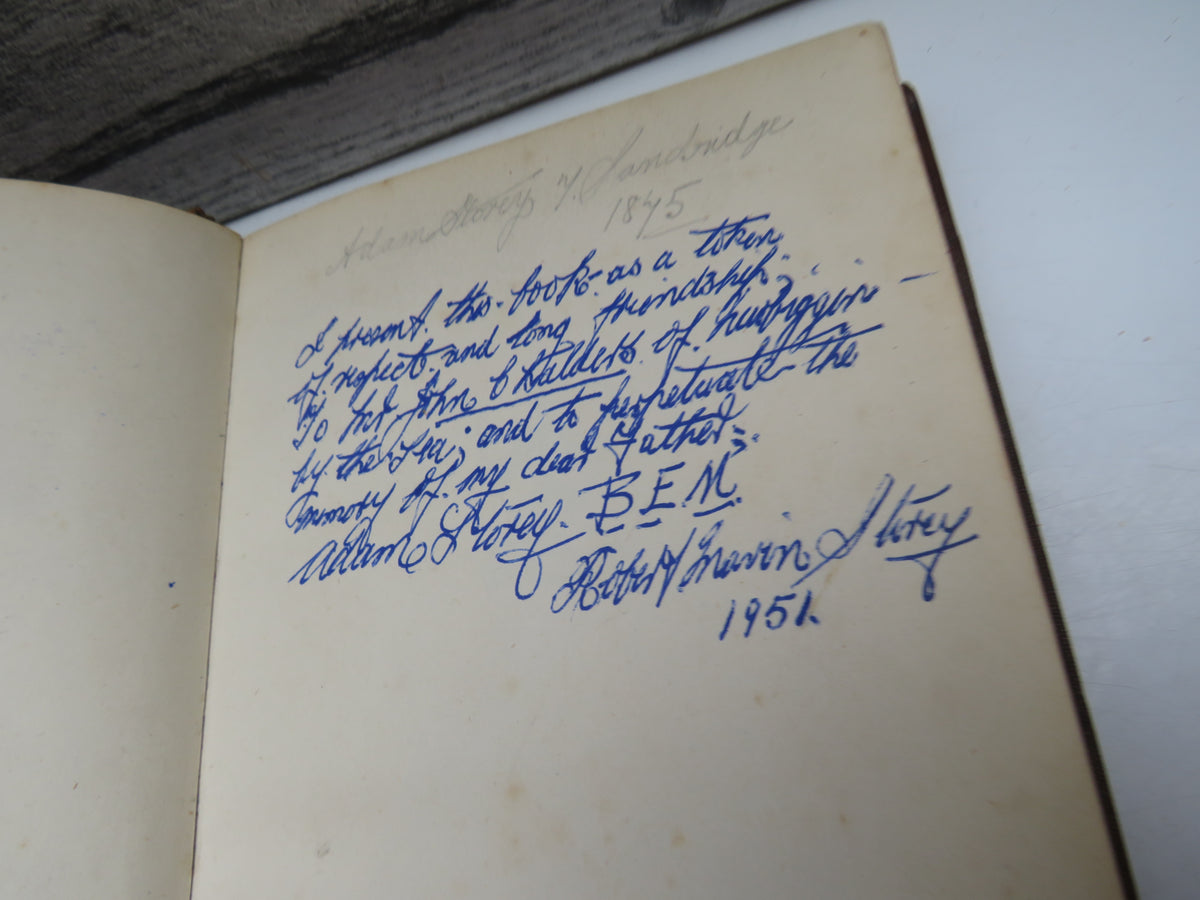 Adam Storey 7. Sandridge
1875
I present this book as a token
of respect and long friendship
To Mr John C of Newbiggin -
by the Sea; and to perpetuate the
memory of my dear Father:-
Adam Storey. B.E.M.
Robert Mavin Storey
1951.